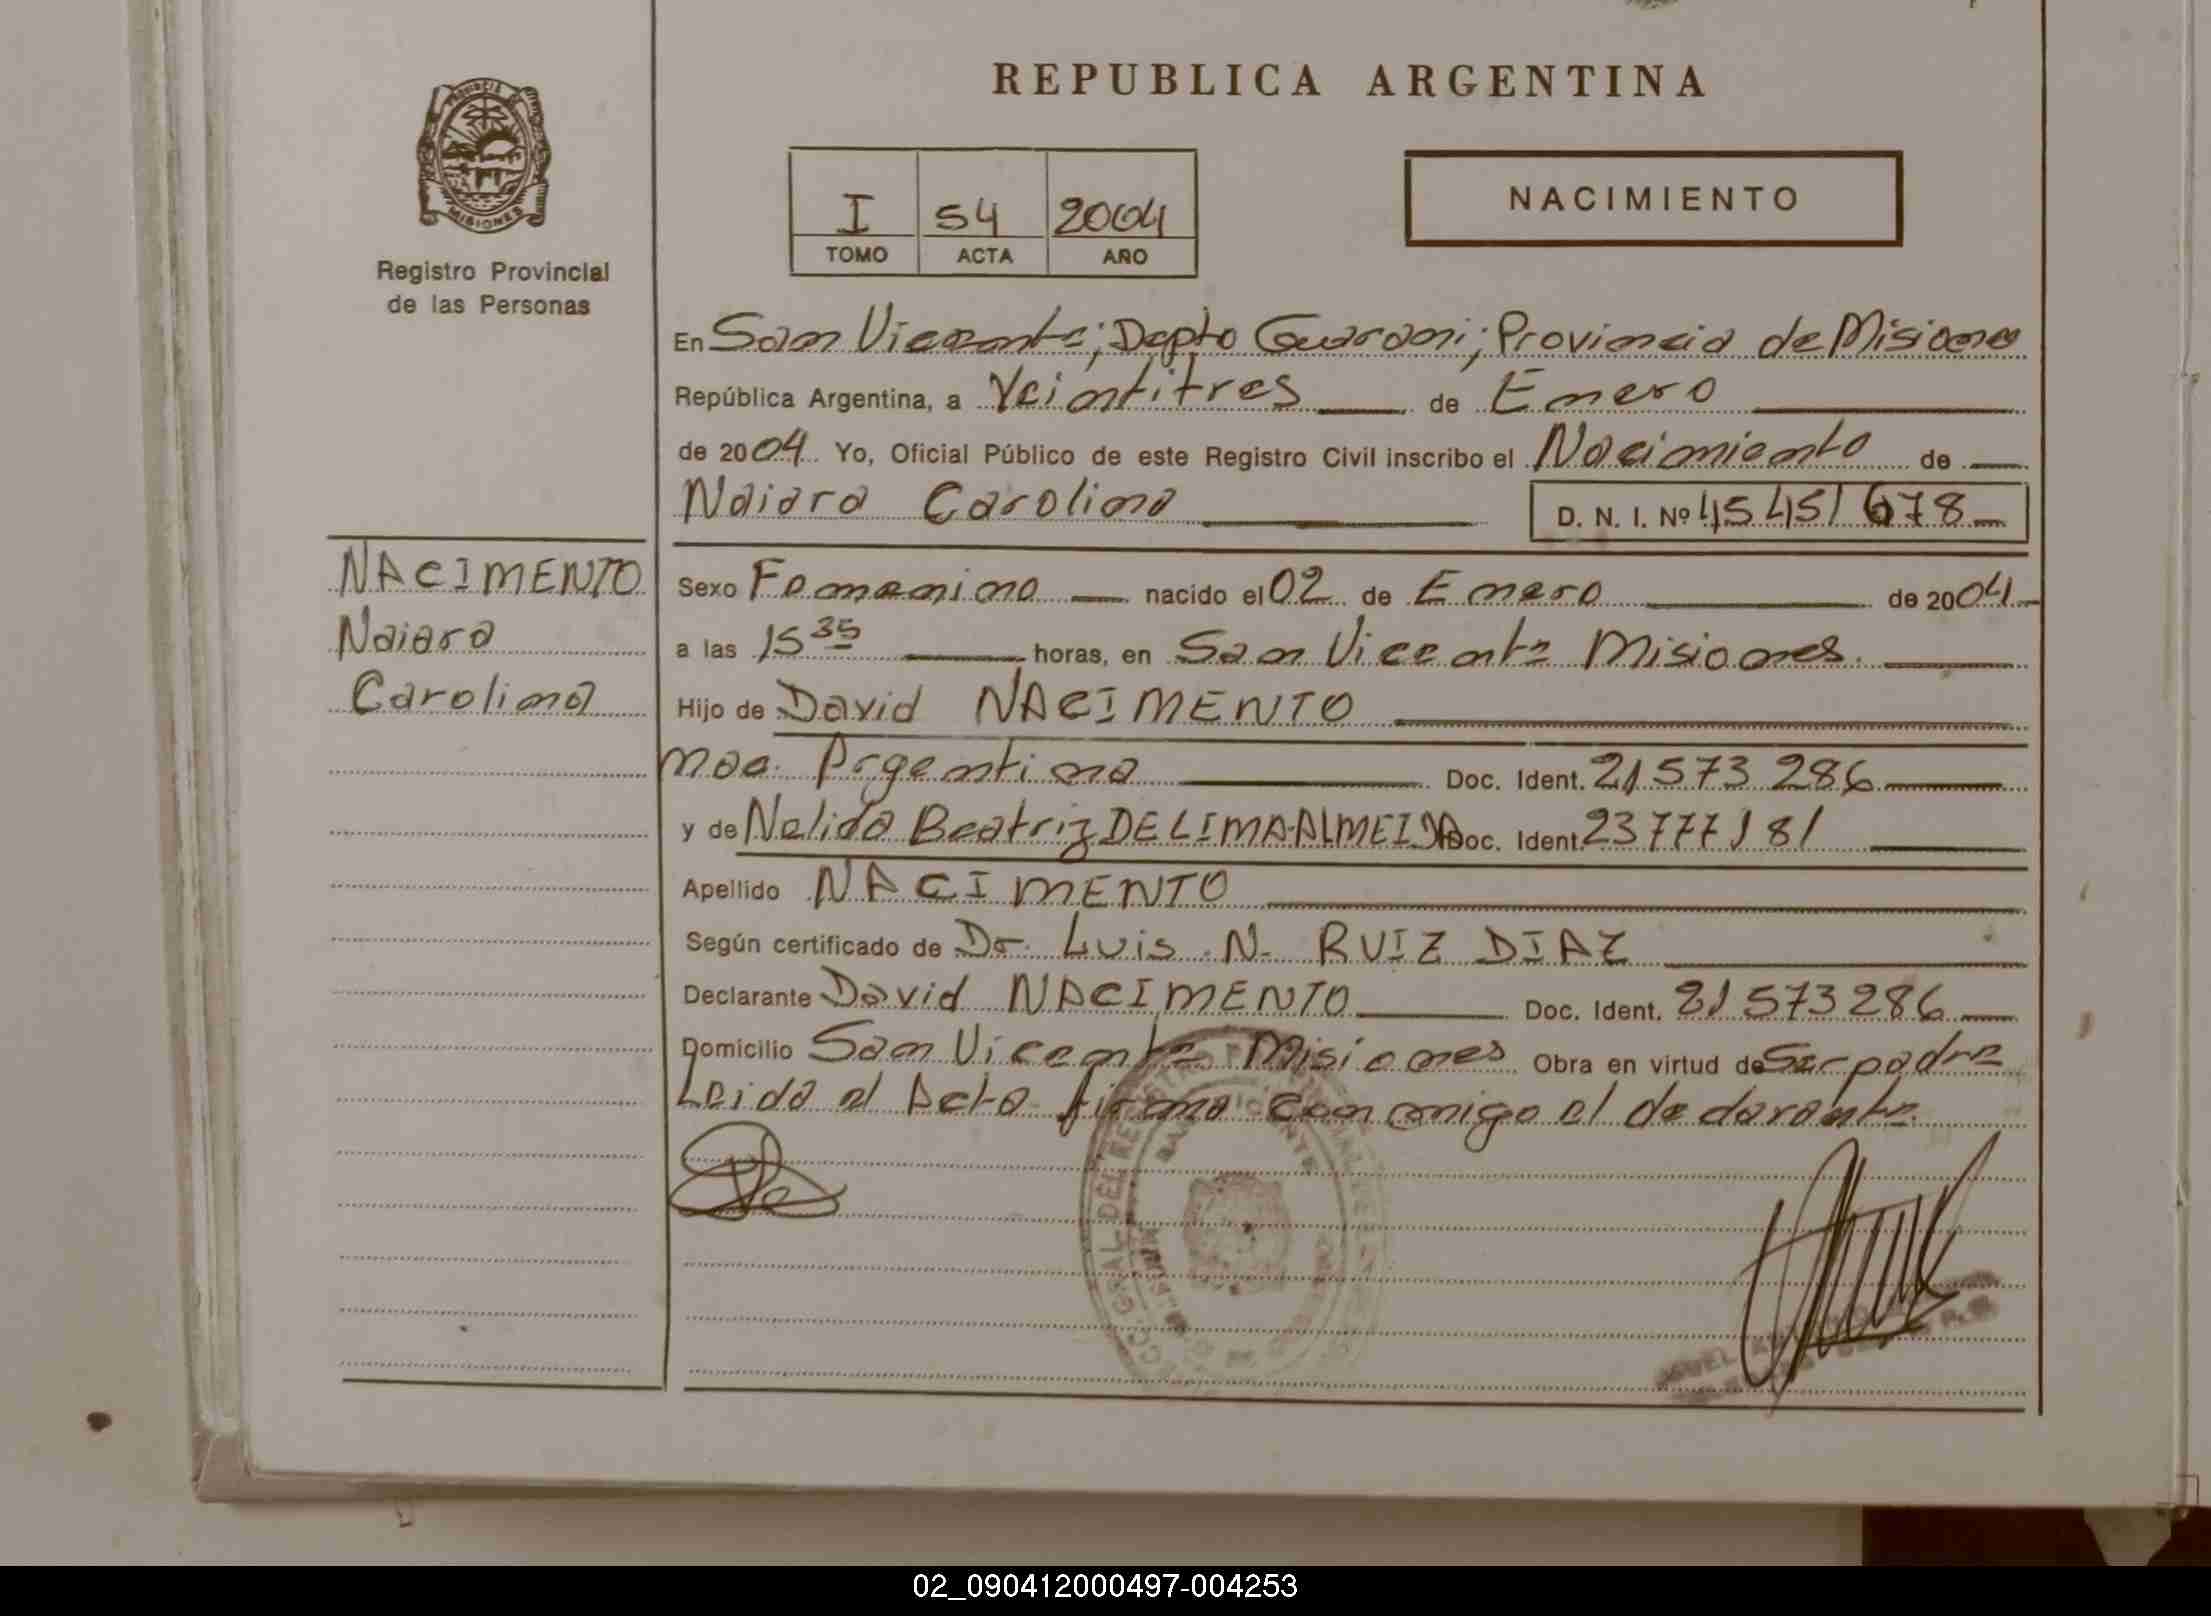 REPUBLICA ARGENTINA
PROVINCIA DE
MISIONES
Registro Provincial
de las Personas
I 54 2004
TOMO ACTA AÑO
NACIMIENTO
En San Vicente; Depto Guarani; Provincia de Misiones
República Argentina, a Veintitres de Enero
de 2004 Yo, Oficial Público de este Registro Civil inscribo el Nacimiento de
Naiara Carolina D. N. I. Nº 45451678
NACIMENTO
Naiara
Carolina
Sexo Femenino nacido el 02 de Enero de 2004
a las 15 35 horas, en San Vicente Misiones.
Hijo de David NACIMENTO
nac. Argentina Doc. Ident. 21573286
y de Nelida Beatriz DE LIMA ALMEIDA Doc. Ident. 23777181
Apellido NACIMENTO
Según certificado de Dr. Luis N. RUIZ DIAZ
Declarante David NACIMENTO Doc. Ident. 21573286
Domicilio San Vicente Misiones Obra en virtud de Ser padre
Leida el Acta firma conmigo el declarante.
02_090412000497-004253